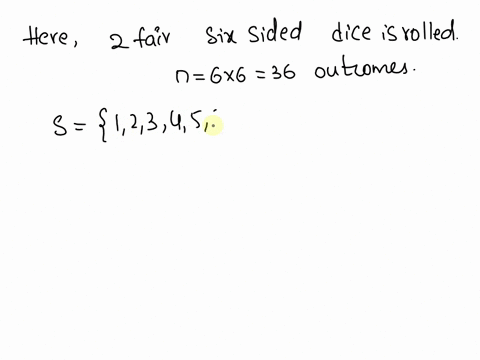 Here, 2 fair six sided dice is rolled.
n = 6×6 = 36 outcomes.
S = {1,2,3,4,5,